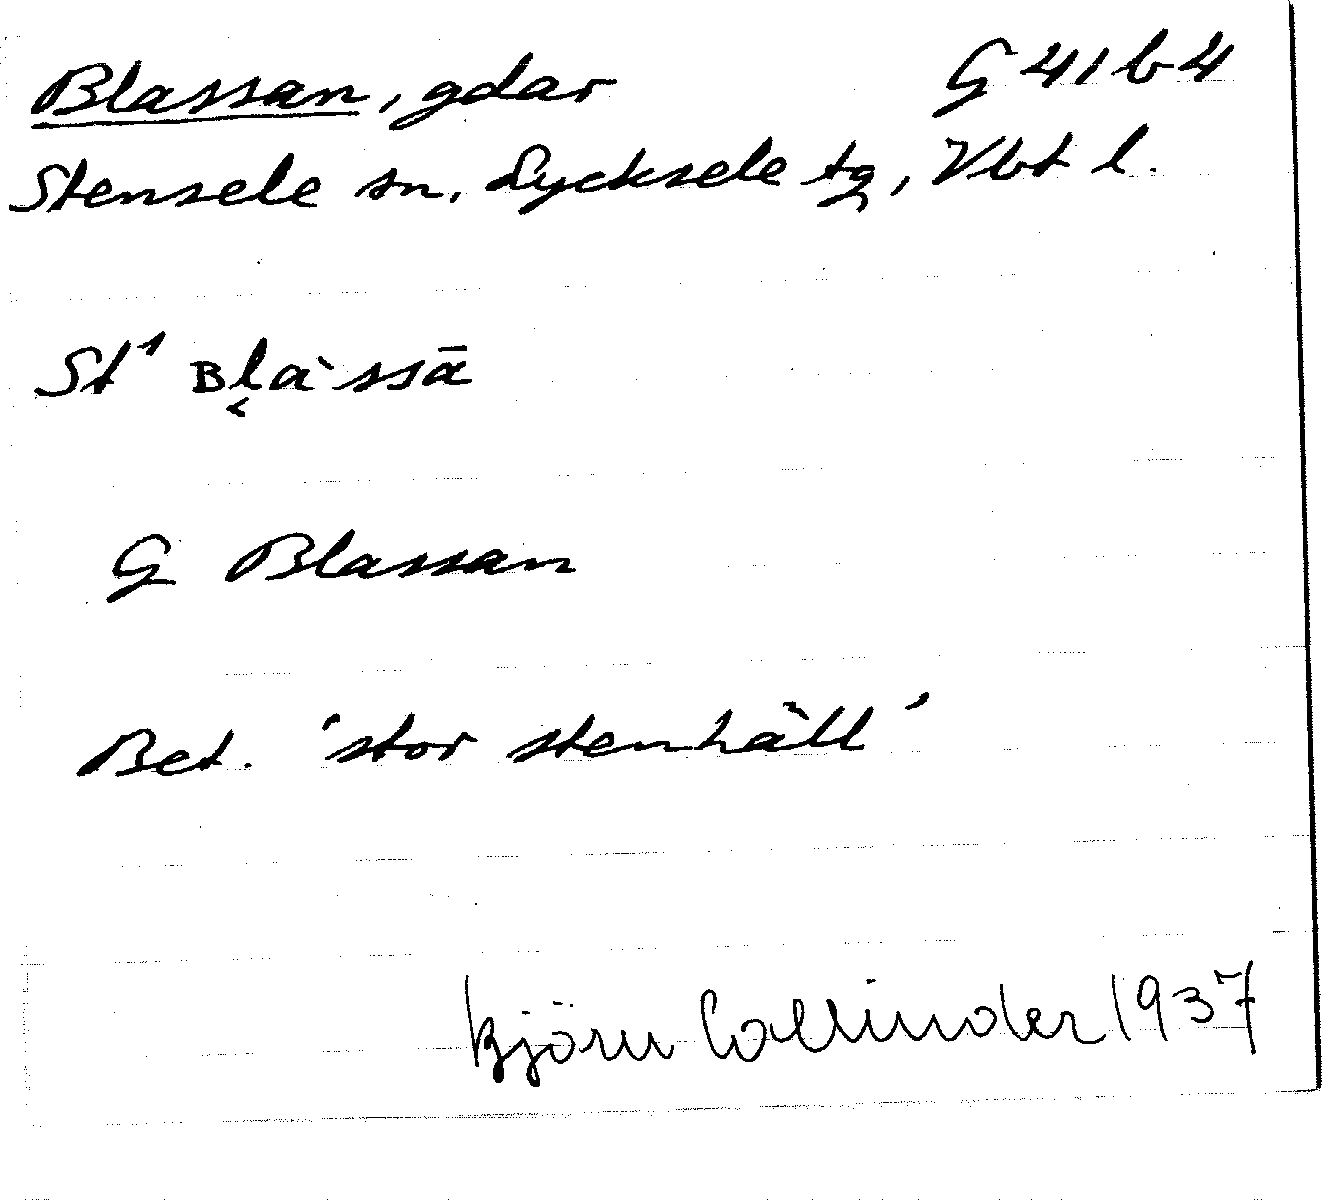 Blassan, gdar G 41 b 4
Stensele sn, Lycksele tg, Vbt l.
St¹ ʙl̬a`ssā
G Blassan
Bet. 'stor stenhäll'
Björn Collinder 1937